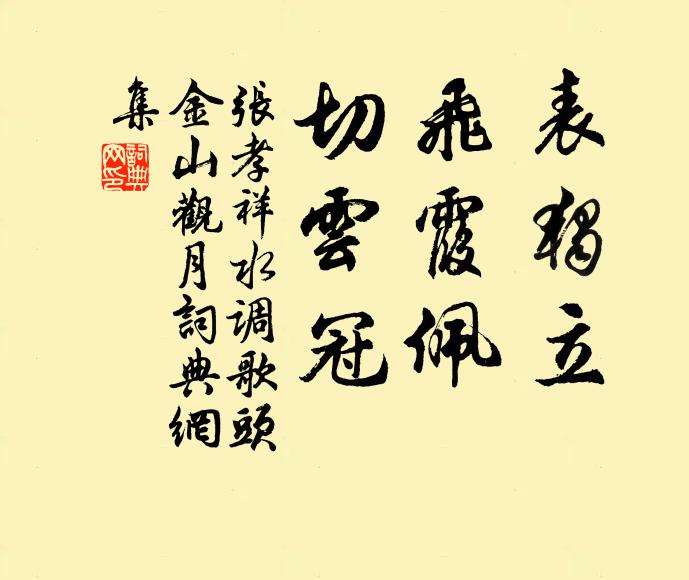 表獨立
飛霞佩
切雲冠
張孝祥水调歌頭
金山觀月詞典網
集
詞典
网印